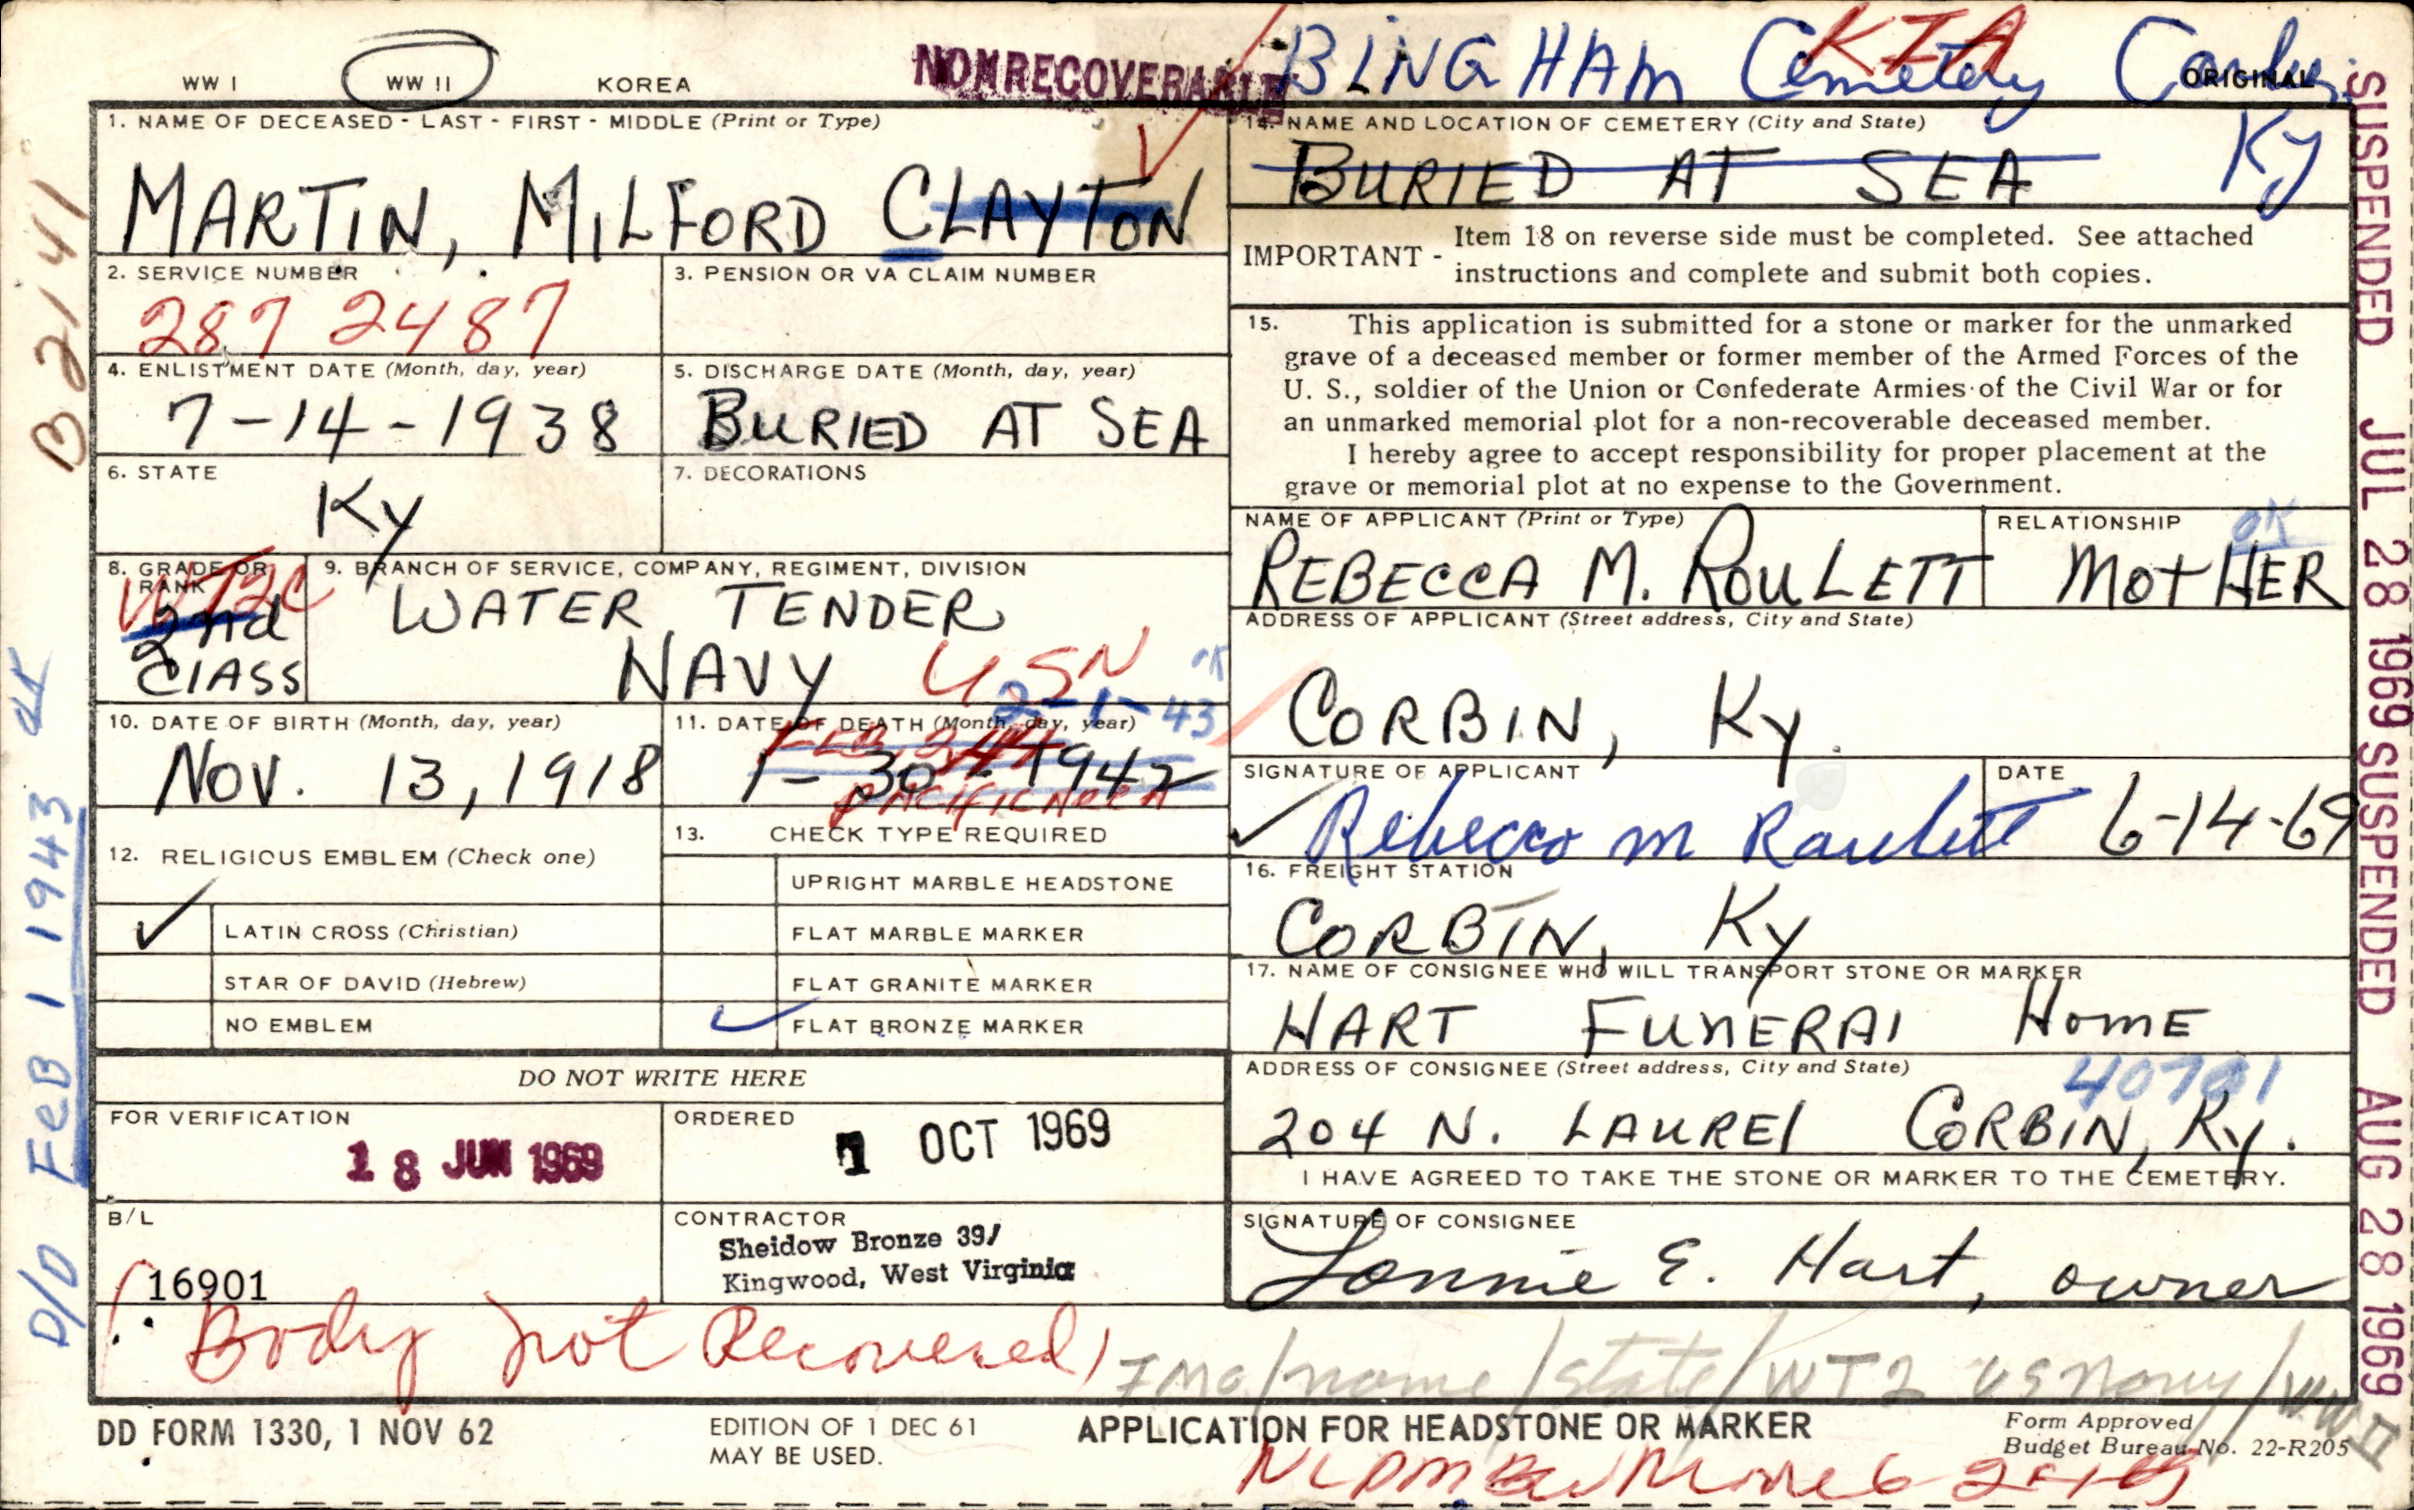 WW I    WW II    KOREA    NONRECOVERABLE    KIA    ORIGINAL
BINGHAM Cemetery
Ky
1. NAME OF DECEASED - LAST - FIRST - MIDDLE (Print or Type)
MARTIN, MILFORD CLAYTON
2. SERVICE NUMBER
287 2487
3. PENSION OR VA CLAIM NUMBER
4. ENLISTMENT DATE (Month, day, year)
7-14-1938
5. DISCHARGE DATE (Month, day, year)
BURIED AT SEA
6. STATE
Ky
7. DECORATIONS
8. GRADE OR RANK
WT2C
2nd
CLASS
9. BRANCH OF SERVICE, COMPANY, REGIMENT, DIVISION
WATER TENDER
NAVY USN
10. DATE OF BIRTH (Month, day, year)
NOV. 13, 1918
11. DATE OF DEATH (Month, day, year)
2-1-43 OK
1-30-1942
PACIFIC AREA
12. RELIGIOUS EMBLEM (Check one)
LATIN CROSS (Christian)
STAR OF DAVID (Hebrew)
NO EMBLEM
13. CHECK TYPE REQUIRED
UPRIGHT MARBLE HEADSTONE
FLAT MARBLE MARKER
FLAT GRANITE MARKER
FLAT BRONZE MARKER
DO NOT WRITE HERE
FOR VERIFICATION
18 JUN 1969
ORDERED
1 OCT 1969
B/L
16901
CONTRACTOR
Sheidow Bronze 39/
Kingwood, West Virginia
14. NAME AND LOCATION OF CEMETERY (City and State)
BURIED AT SEA
IMPORTANT - Item 18 on reverse side must be completed. See attached
instructions and complete and submit both copies.
15. This application is submitted for a stone or marker for the unmarked
grave of a deceased member or former member of the Armed Forces of the
U. S., soldier of the Union or Confederate Armies of the Civil War or for
an unmarked memorial plot for a non-recoverable deceased member.
I hereby agree to accept responsibility for proper placement at the
grave or memorial plot at no expense to the Government.
NAME OF APPLICANT (Print or Type)
REBECCA M. ROULETT
RELATIONSHIP
OK
MOTHER
ADDRESS OF APPLICANT (Street address, City and State)
CORBIN, Ky.
SIGNATURE OF APPLICANT
Rebecca M Roulett
DATE
6-14-69
16. FREIGHT STATION
CORBIN, Ky
17. NAME OF CONSIGNEE WHO WILL TRANSPORT STONE OR MARKER
HART FUNERAL HOME
ADDRESS OF CONSIGNEE (Street address, City and State)
40701
204 N. LAUREL CORBIN, Ky.
I HAVE AGREED TO TAKE THE STONE OR MARKER TO THE CEMETERY.
SIGNATURE OF CONSIGNEE
Lonnie E. Hart, owner
Body not Recovered
/name/state/WT2 US Navy/WW II
DD FORM 1330, 1 NOV 62
EDITION OF 1 DEC 61
MAY BE USED.
APPLICATION FOR HEADSTONE OR MARKER
Form Approved
Budget Bureau No. 22-R205
B2141
D/D FEB 1 1943 OK
SUSPENDED JUL 28 1969 SUSPENDED AUG 28 1969